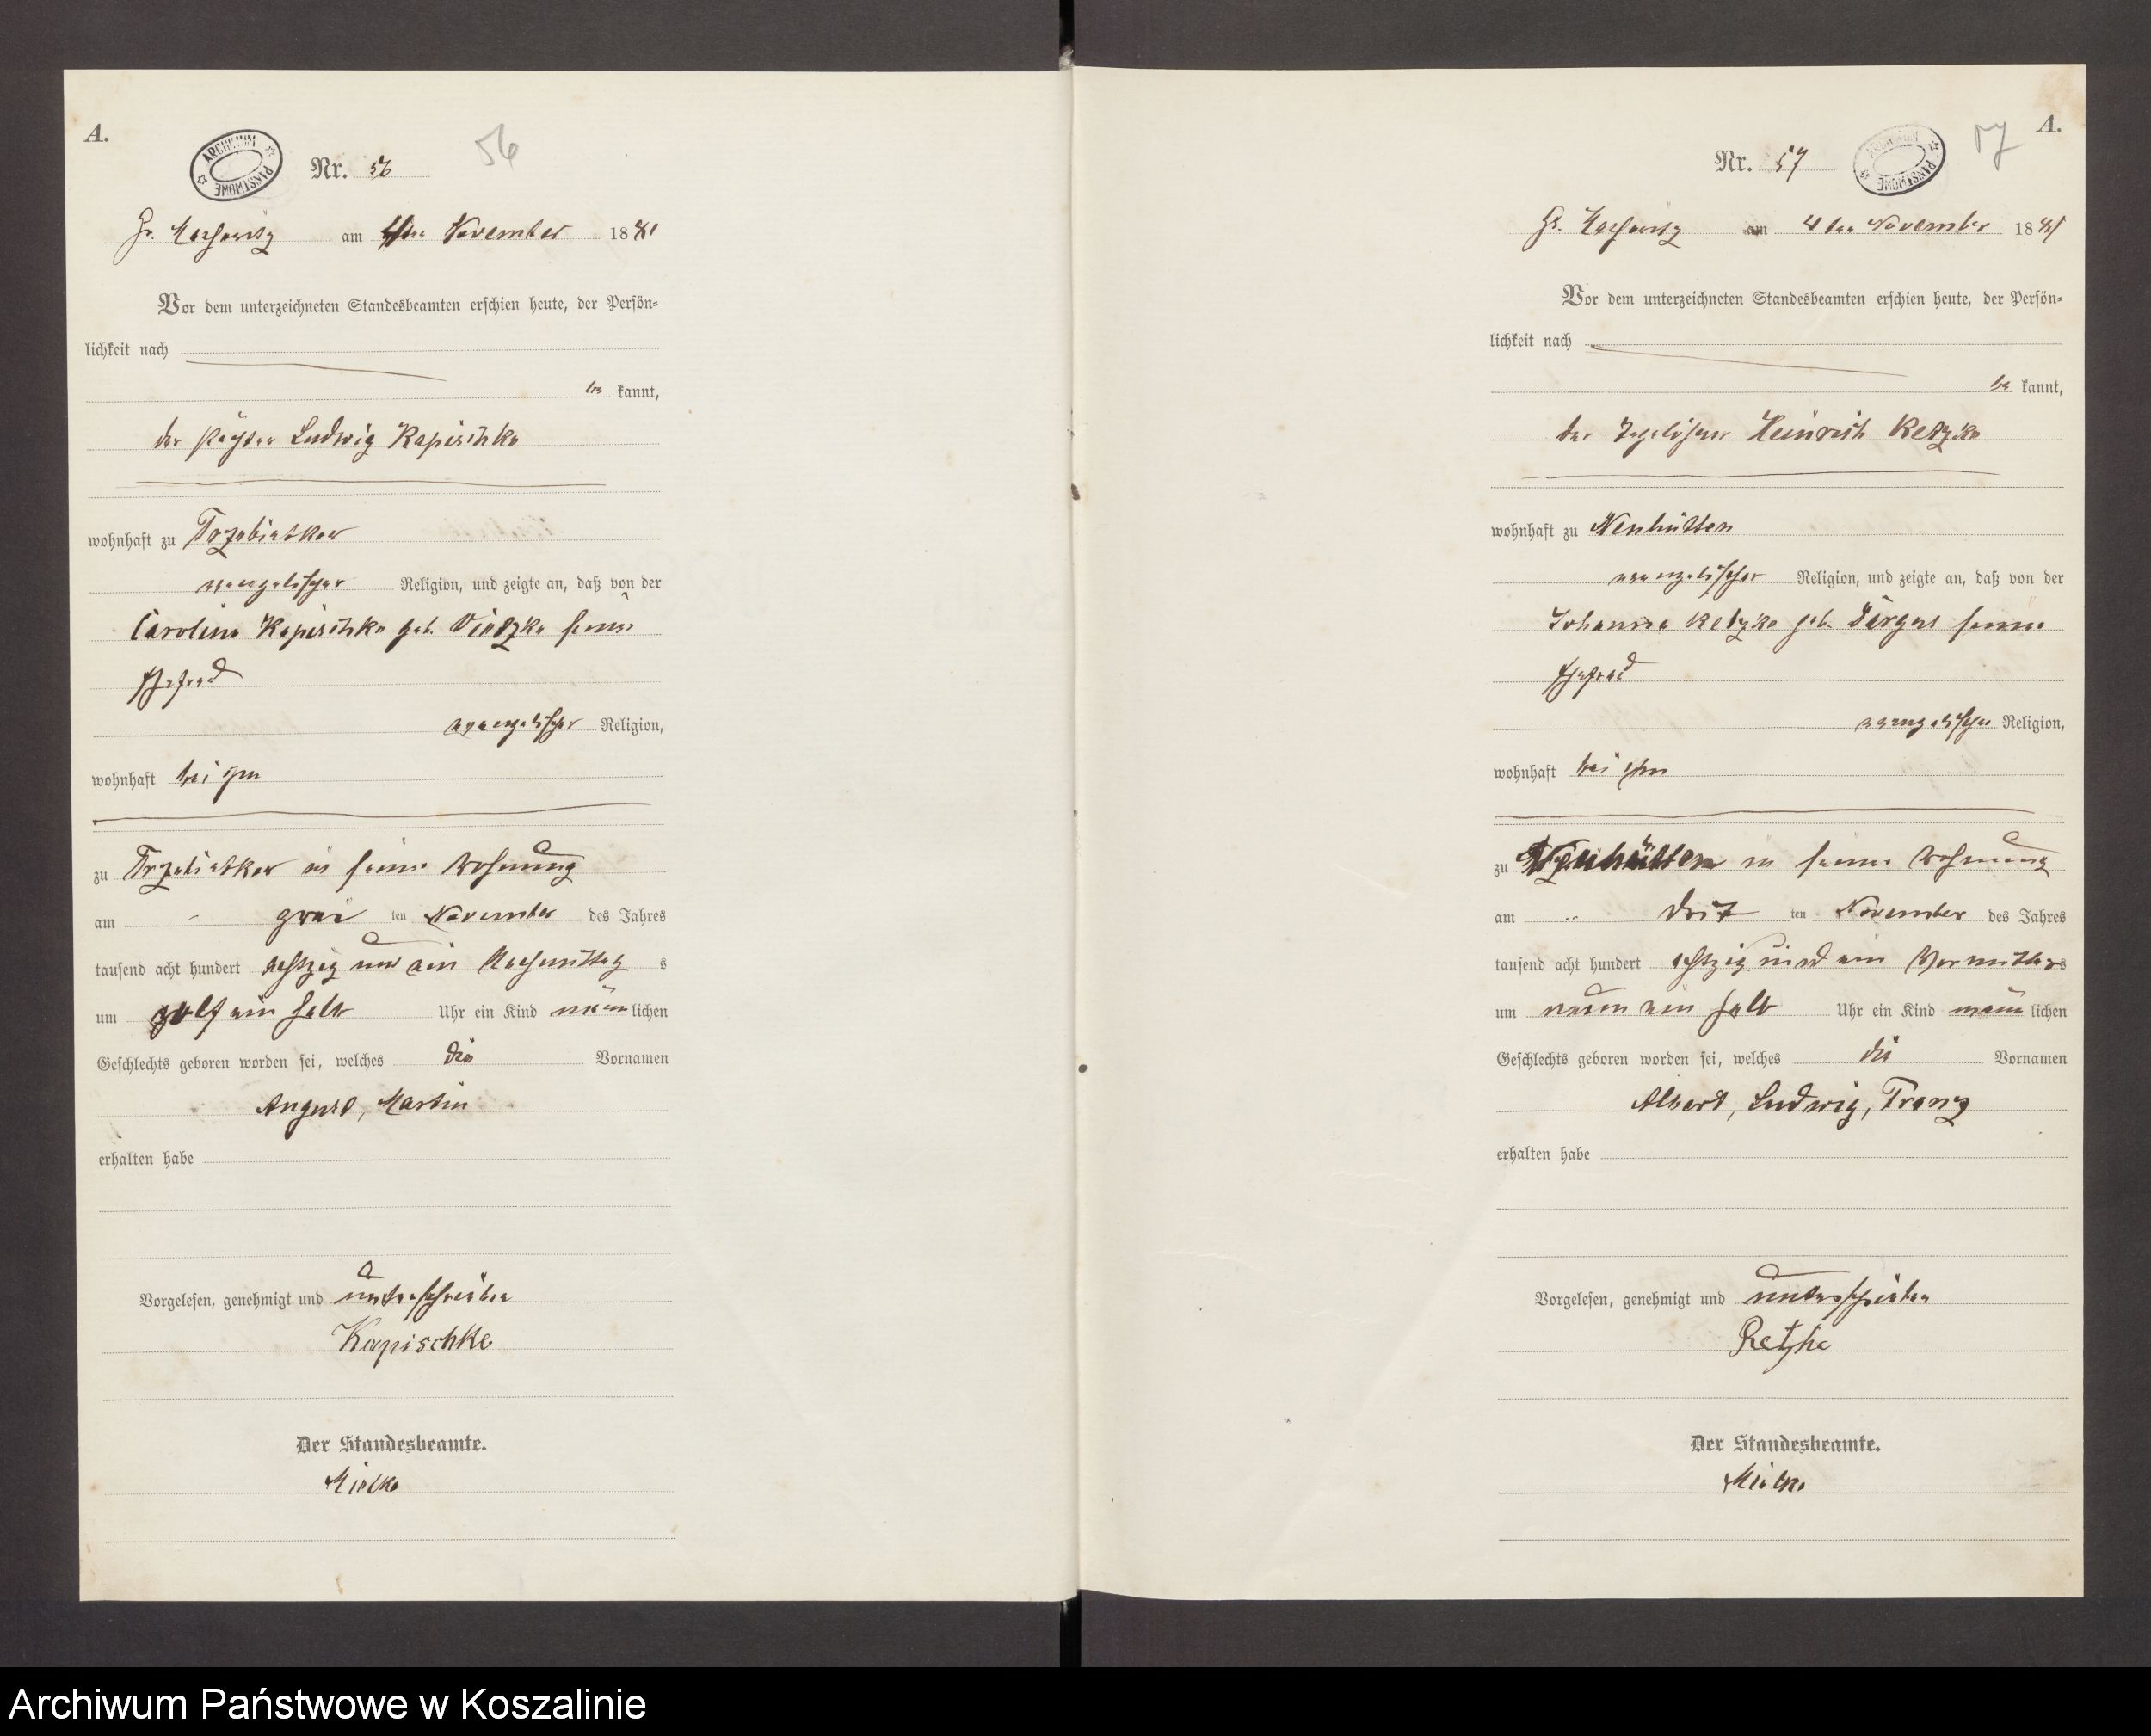 A.
ARCHIWUM PAŃSTWOWE
Nr. 56
56
am 4ten November 1881
Vor dem unterzeichneten Standesbeamten erschien heute, der Persön=
lichkeit nach
be kannt,
der Pächter Ludwig Kapischke
wohnhaft zu Trzebiatkow
evangelischer Religion, und zeigte an, daß von der
Caroline Kapischke geb. Vietzke seine
Ehefrau
evangelischer Religion,
wohnhaft bei ihm
zu Trzebiatkow in seiner Wohnung
am zwei ten November des Jahres
tausend acht hundert achtzig und ein Nachmittag s
um zwölf ein halb Uhr ein Kind männ lichen
Geschlechts geboren worden sei, welches die Vornamen
August, Martin
erhalten habe
Vorgelesen, genehmigt und unterschrieben
Kapischke
Der Standesbeamte.
Mielke
A.
ARCHIWUM PAŃSTWOWE
57
Nr. 57
am 4ten November 1881
Vor dem unterzeichneten Standesbeamten erschien heute, der Persön=
lichkeit nach
be kannt,
der Tagelöhner Heinrich Retzke
wohnhaft zu Neuhütten
evangelischer Religion, und zeigte an, daß von der
Johanna Retzke geb. seine
Ehefrau
evangelischer Religion,
wohnhaft bei ihm
zu Neuhütten in seiner Wohnung
am drit ten November des Jahres
tausend acht hundert achtzig und ein Vormittag s
um neun ein halb Uhr ein Kind männ lichen
Geschlechts geboren worden sei, welches die Vornamen
Albert, Ludwig, Franz
erhalten habe
Vorgelesen, genehmigt und unterschrieben
Retzke
Der Standesbeamte.
Mielke
Archiwum Państwowe w Koszalinie